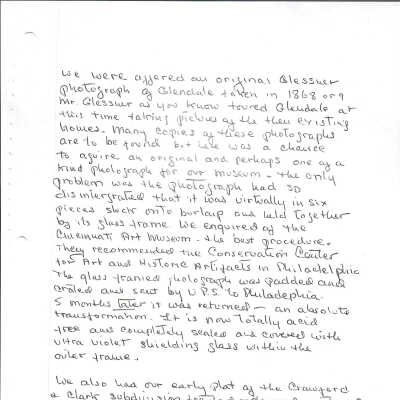 We were offered an original Glessner
photograph of Glendale taken in 1868 or 9
Mr. Glessner as you know toured Glendale at
this time taking pictures of the then existing
homes. Many copies of these photographs
are to be found but here was a chance
to aquire an original and perhaps one of a
kind photograph for our museum. The only
problem was the photograph had so
disintergrated that it was virtually in six
pieces stuck onto burlap and held together
by its glass frame. We enquired of the
Cincinnati Art Museum - the best procedure.
They recommended the Conservation Center
for Art and Historic Artifacts in Philadelphia
The glass framed photograph was padded and
crated and sent by U.P.S. to Philadelphia.
5 months later it was returned - an absolute
transformation. It is now totally acid
free and completely sealed and covered with
ultra violet shielding glass within the
outer frame.
We also had our early plat of the Crawford
& Clark subdivision